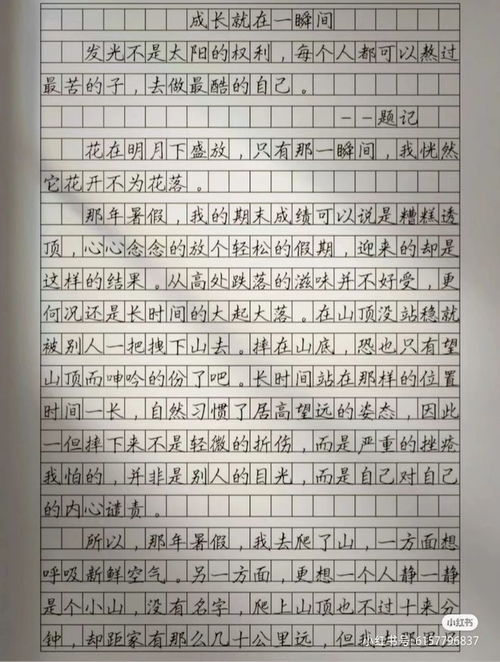 成长就在一瞬间
发光不是太阳的权利，每个人都可以熬过
最苦的子，去做最酷的自己。
--题记
花在明月下盛放，只有那一瞬间，我恍然
它花开不为花落。
那年暑假，我的期末成绩可以说是糟糕透
顶，心心念念的放个轻松的假期，迎来的却是
这样的结果。从高处跌落的滋味并不好受，更
何况还是长时间的大起大落。在山顶没站稳就
被别人一把拽下山去。摔在山底，恐也只有望
山顶而呻吟的份了吧。长时间站在那样的位置
时间一长，自然习惯了居高望远的姿态，因此
一但摔下来不是轻微的折伤，而是严重的挫疮
我怕的，并非是别人的目光，而是自己对自己
的内心谴责。
所以，那年暑假，我去爬了山，一方面想
呼吸新鲜空气。另一方面，更想一个人静一静
是个小山，没有名字，爬上山顶也不过十来分
钟，却距家有那么几十公里远，但我
小红书
小红书号:6157796837